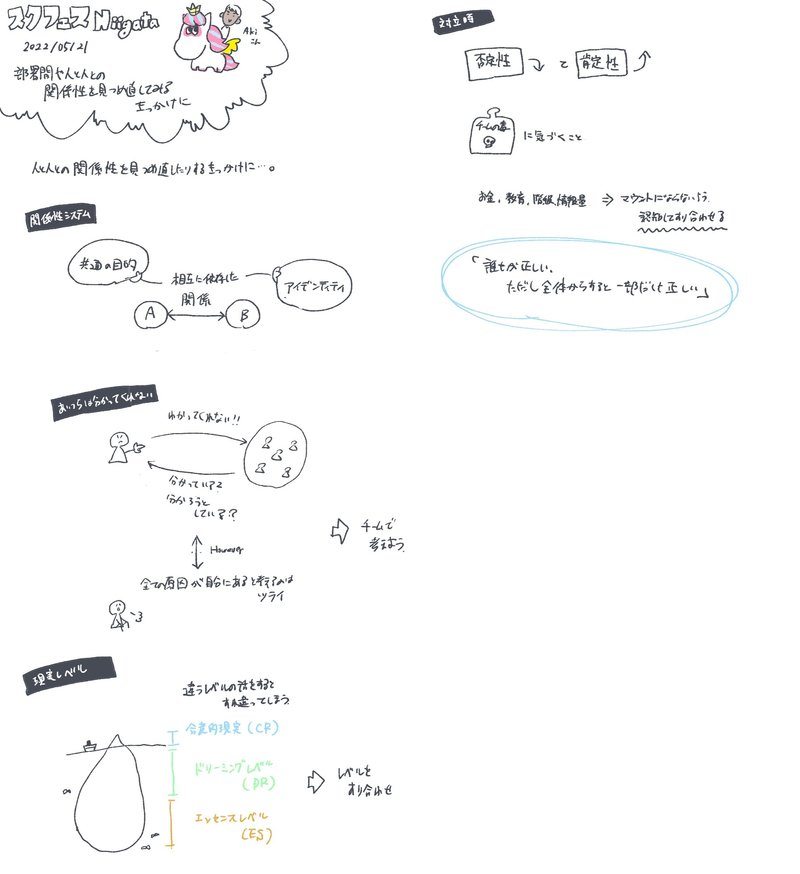 スクフェス Niigata
2022/05/21
Aki
さん
部署間や人と人との
関係性を見つめ直してみる
きっかけに
人と人との関係性を見つめ直したりするきっかけに…。
関係性システム
共通の目的
相互に依存した
関係
アイデンティティ
A
B
あいつらは分かってくれない
わかってくれない!!
分かっている?
分かろうと
している??
However
全ての原因が自分にあると考えるのは
ツライ
チームで
考えよう
現実レベル
違うレベルの話をすると
すれ違ってしまう
合意的現実(CR)
ドリーミングレベル
(DR)
エッセンスレベル
(ES)
レベルを
すり合わせ
対立時
否定性
と
肯定性
チームの毒
に気づくこと
お金、教育、階級、情報量
⇒ マウントにならないよう
認知してすり合わせる
「誰もが正しい、
ただし全体からすると一部だけ正しい」